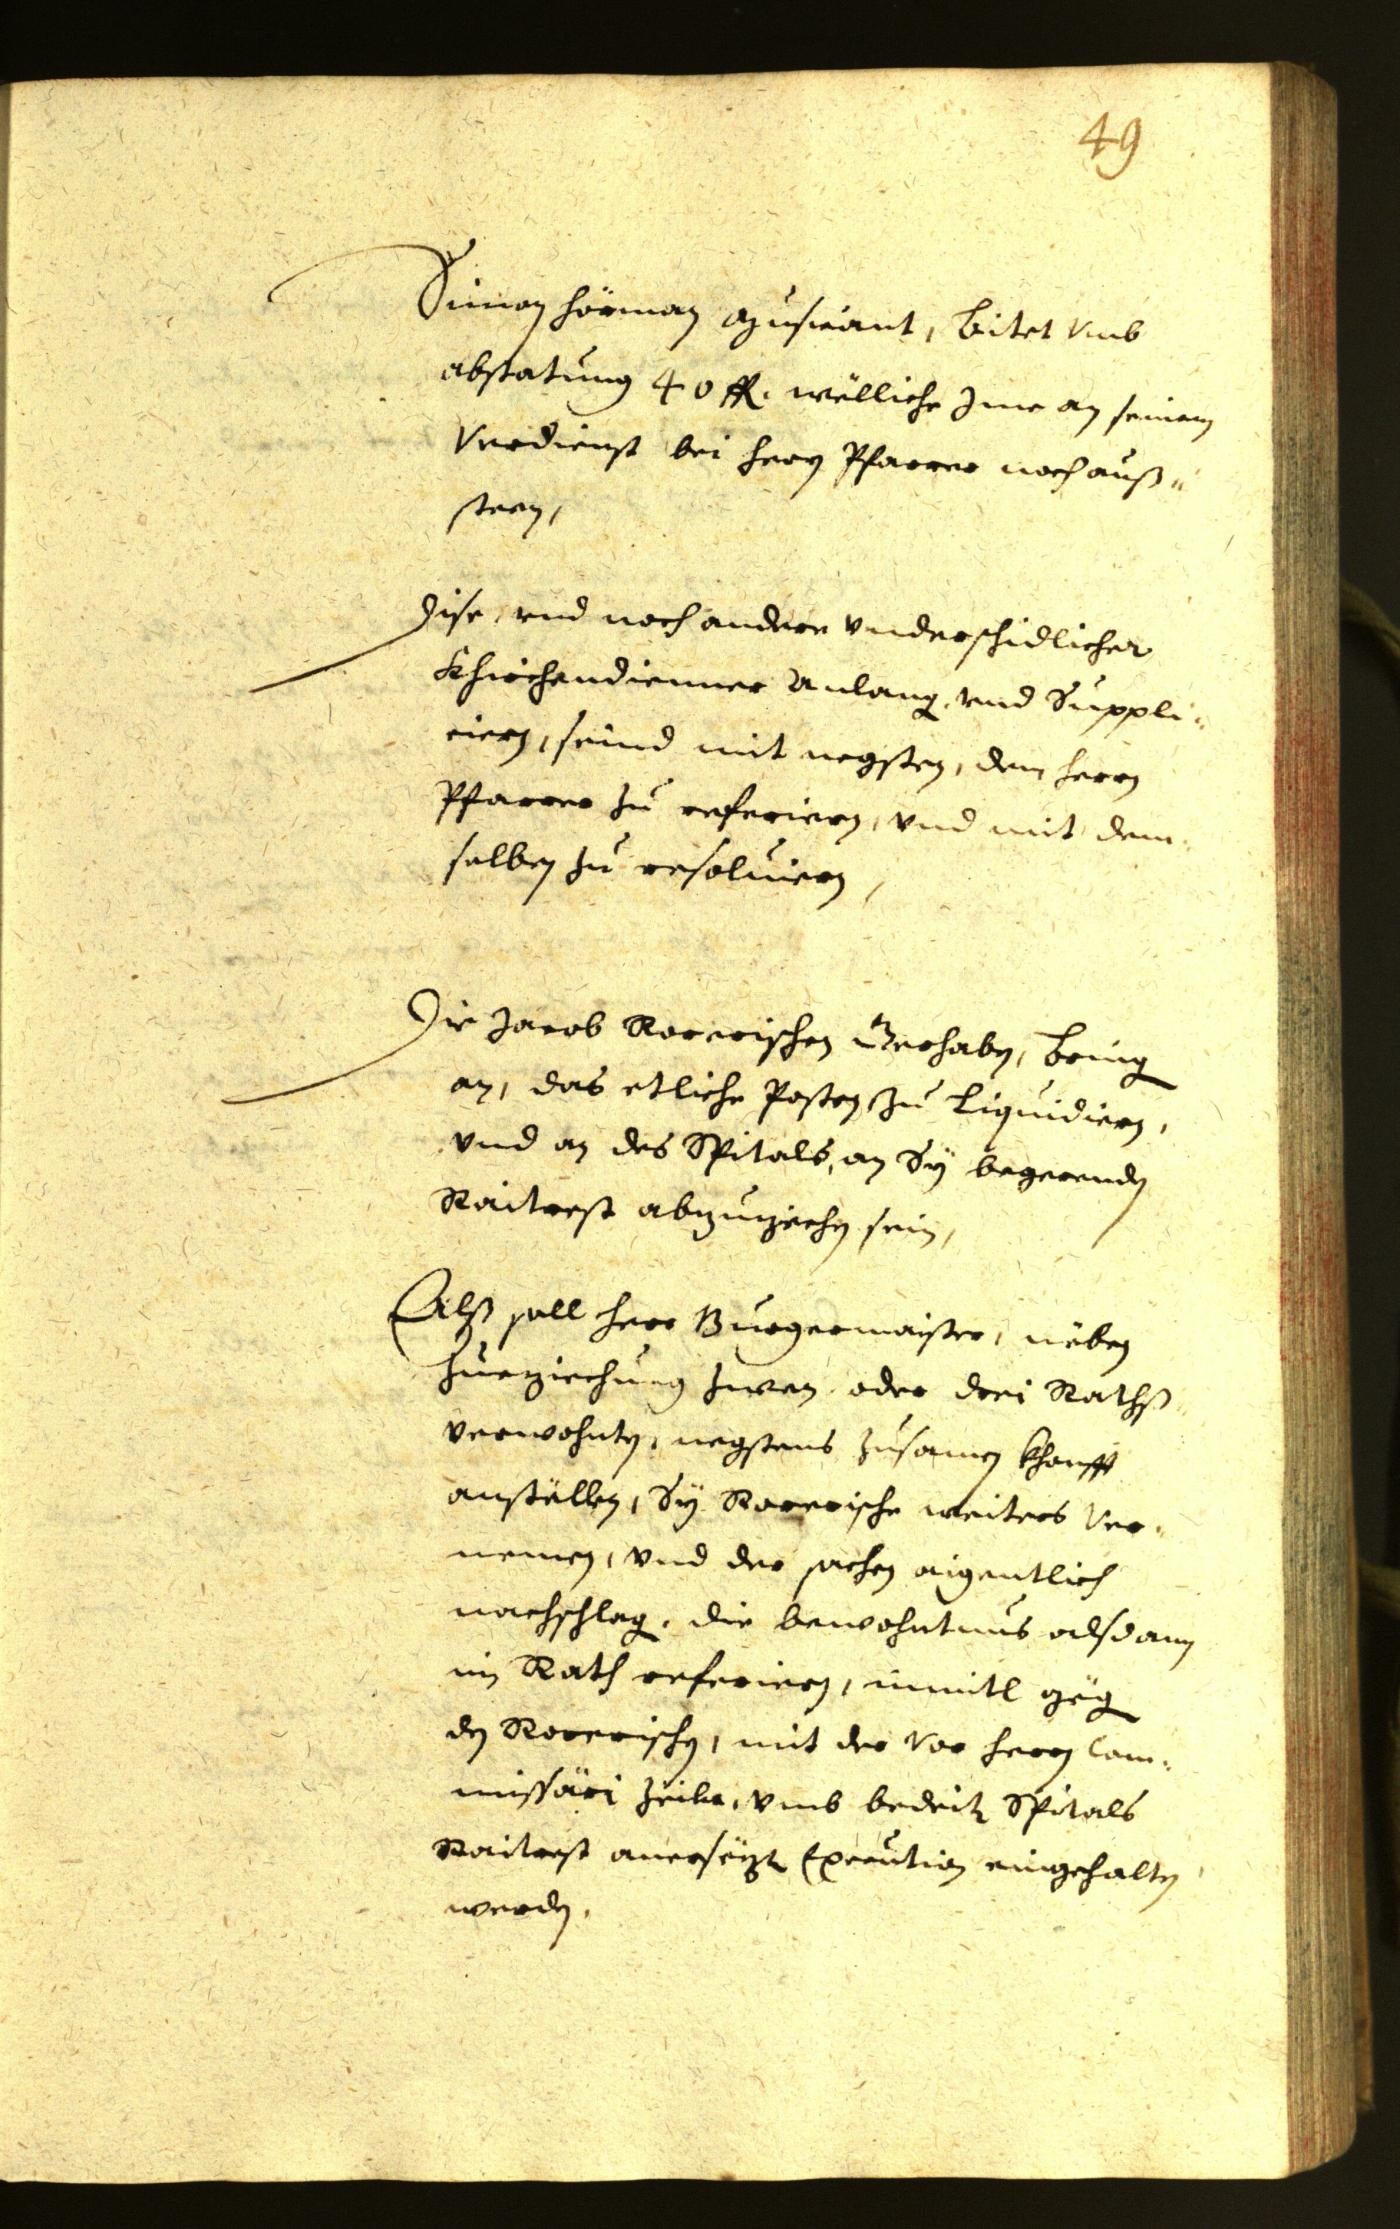 49
Simon Hörman Musicant, bitet vmb
abstatung 40 fl. wölliche Ime an seinem
Verdienst bei herrn Pfarrer noch auß¬
steen,
Dise, vnd noch andere vnderschidlicher
Khirchendienner Anlang, vnd Suppli¬
ciern, seind mit negsten, dem herrn
Pfarrer zu referiern, vnd mit dem¬
selben zu resoluiern,
Die Jacob Rorerischen Gerhabn, bring
an, das etliche Posten zu Liquidiern,
vnd an des Spitals, an Sÿ begerenden
Raitrest abzuziechn sein,
Alß soll herr Burgermaister, neben
zueziechung zwen oder drei Raths
verwohnten, negstens zusamen khonfft
anstöllen, Sÿ Rorerische weiters Ver¬
nemen, vnd der sachen aigentlich
nachschlag, die bewohntnus alsdann
im Rath referiern, inmitl geg
den Rorerischn, mit der vor herrn Com¬
missäri Zeiler, vmb bedeits Spitals
Raitrest anersezt Execution eingehaltn
werden.